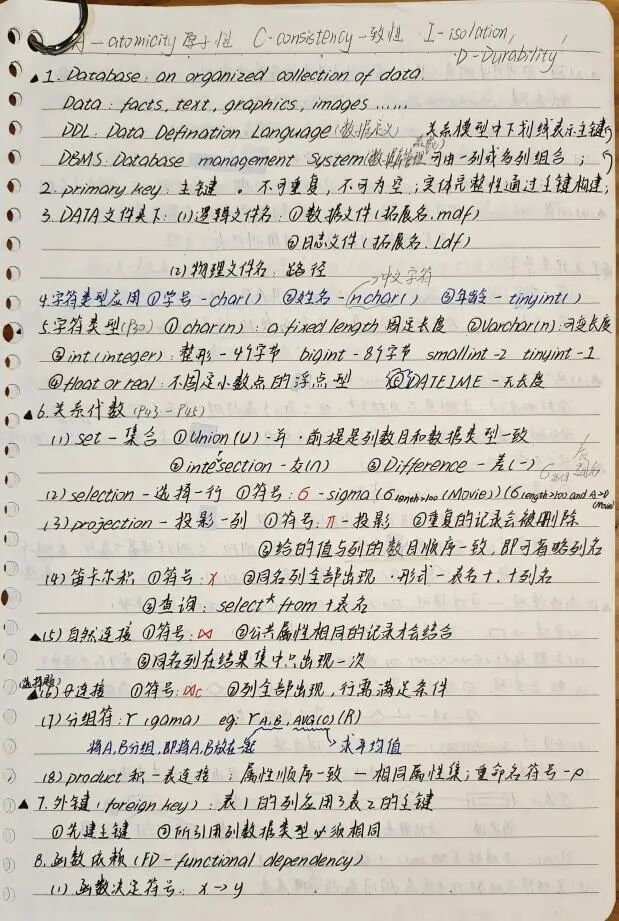 A-atomicity 原子性 C-consistency 一致性 I-isolation,
D-Durability
▲1. Database: an organized collection of data.
Data: facts, text, graphics, images ......
DDL: Data Defination Language (数据定义) 关系模型中下划线表示主键
DBMS: Database management System (数据库管理系统) 可由一列或多列组合;
2. primary key: 主键。不可重复,不可为空;实体完整性通过主键构建;
3. DATA文件夹下: (1)逻辑文件名: ①数据文件(拓展名.mdf)
②日志文件(拓展名.Ldf)
(2)物理文件名: 路径
→中文字符
4.字符类型应用 ①学号-char() ②姓名-nchar() ③年龄-tinyint()
5.字符类型(P30) ①char(n): a fixed length 固定长度 ②Varchar(n): 可变长度
③int(integer): 整形-4个字节 bigint-8个字节 smallint-2 tinyint-1
④float or real: 不固定小数点的浮点型 ⑤DATEIME-无长度
▲6.关系代数 (P43-P45)
(1) set-集合 ①Union(U)-并·前提是列数目和数据类型一致
②intersection-交(∩) ③Difference-差(-)
(2) selection-选择-行 ①符号: σ-sigma (σ length>100 (Movie)) (σ length>100 and A>D (Movie)
(3) projection-投影-列 ①符号: π-投影 ②重复的记录会被删除
③给的值与列的数目顺序一致,即可省略列名
(4) 笛卡尔积 ①符号: x ②同名列全部出现·形式-表名+.+列名
③查询: select* from +表名
▲(5)自然连接 ①符号: ⋈ ②公共属性相同的记录才会结合
③同名列在结果集中只出现一次
(选择题)
▲(6) θ连接 ①符号: ⋈c ②列全部出现,行需满足条件
(7) 分组符: r (gama) eg: r A,B,AVG(C) (R)
将A,B分组,即将A,B放在一起 →求平均值
(8) product 积-表连接 ; 属性顺序一致-相同属性集; 重命名符号-ρ
▲7.外键 (foreign key): 表1的列应用了表2的主键
①先建主键 ②所引用列数据类型必须相同
8.函数依赖 (FD-functional dependency)
(1) 函数决定符号: x→y